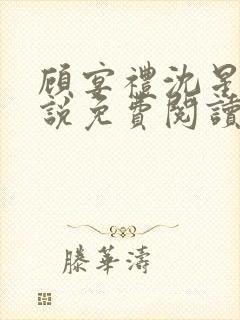 顧宴禮沈星
說免費閱讀
滕華濤